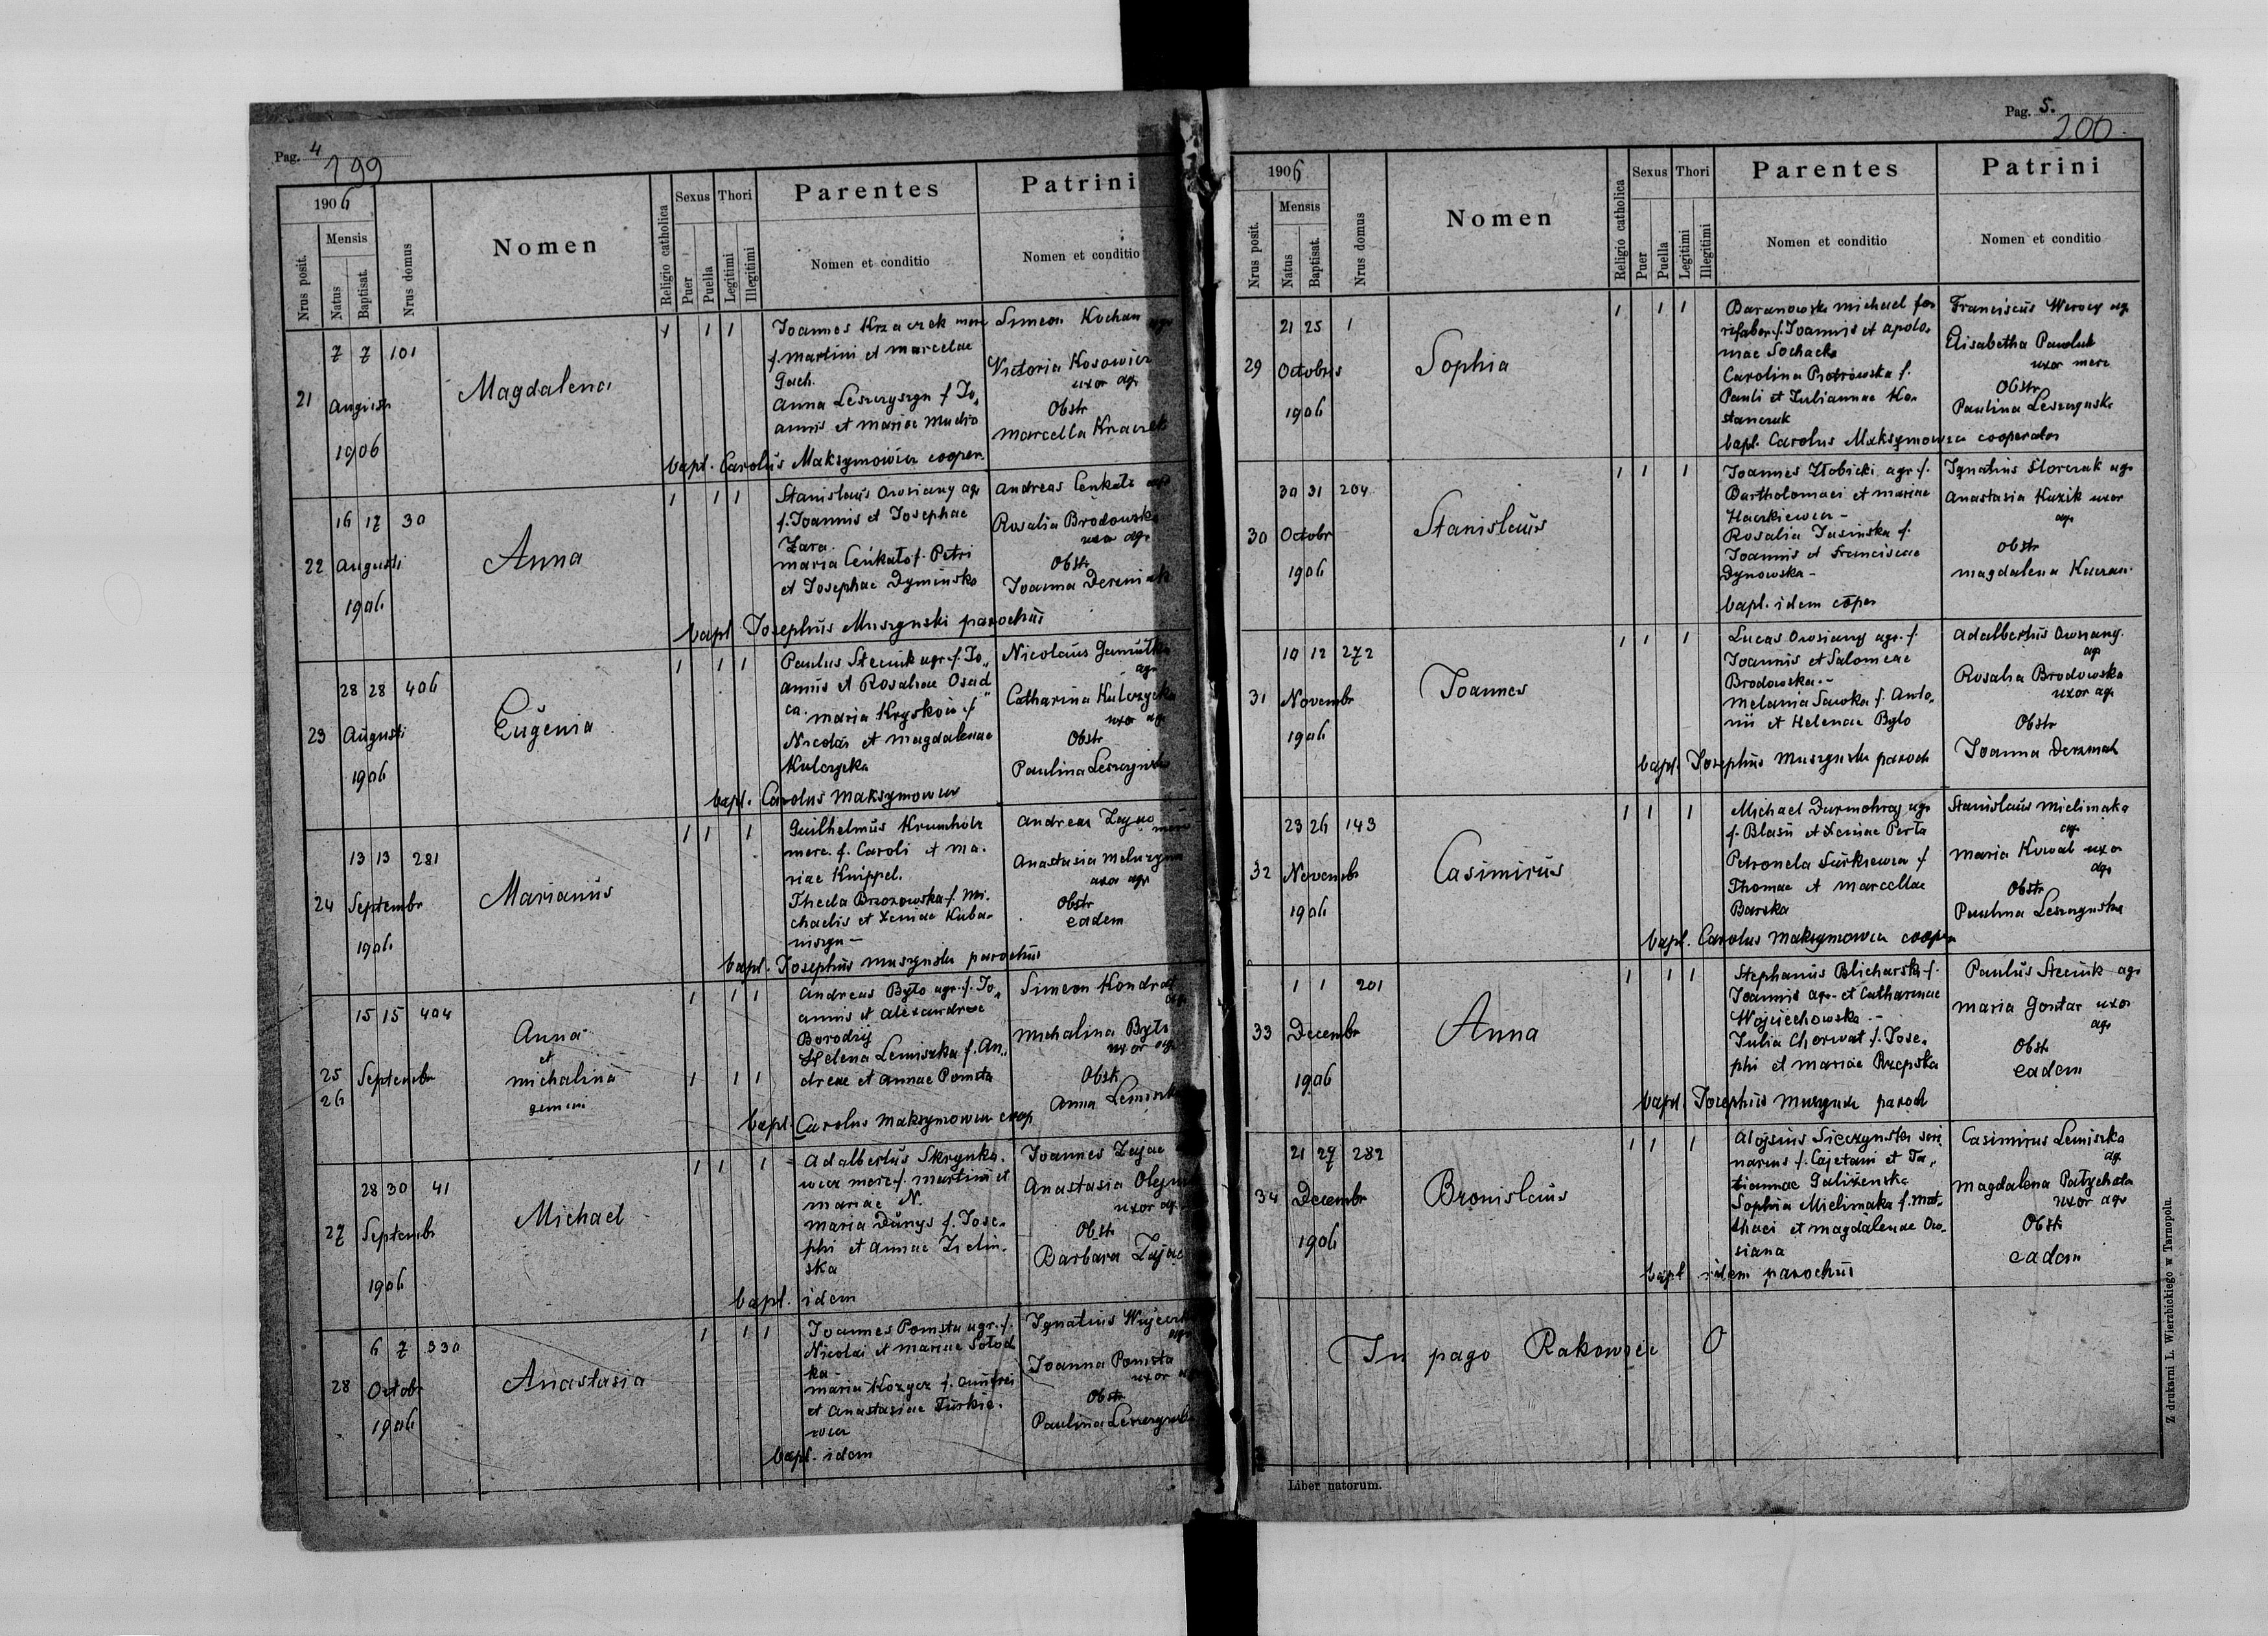 Pag. 4
199
1906
Mensis
Nrus posit.
Natus
Baptisat.
Nrus domus
Nomen
Religio catholica
Sexus
Puer
Puella
Thori
Legitimi
Illegitimi
Parentes
Nomen et conditio
Patrini
Nomen et conditio
21
7 7 101
Augusti
1906
Magdalena
1 1 1
Joannes Krzaczek merc
f. Martini et Marcelae
Gach.
Anna Leszczyszyn f. Jo„
annis et Mariae Mudra
Simeon Kochan agr
Victoria Kosowicz
uxor agr
Obstr
Marcella Kraczek
bapt. Carolus Maksymowicz cooper.
22
16 17 30
Augusti
1906
Anna
1 1 1
Stanislaus Owsiany agr
f. Joannis et Josephae
Zara.
Maria Cenkało f. Petri
et Josephae Dyminska
Andreas Cenkało agr
Rosalia Brodowska
uxor agr
Obstr
Joanna Derzniak
bapt. Josephus Muszynski parochus
23
28 28 406
Augusti
1906
Eugenia
1 1 1
Paulus Steciuk agr. f. Jo„
annis et Rosaliae Osad„
ca.
Maria Kryskow f.
Nicolai et Magdalenae
Kulczycka
Nicolaus Gamułka
agr
Catharina Kulczycka
uxor agr
Obstr
Paulina Leszczynska
bapt. Carolus Maksymowicz
24
13 13 281
Septembr
1906
Marianus
1 1 1
Guilhelmus Krumholz
merc. f. Caroli et Ma.
riae Knippel.
Thecla Brzozowska f. Mi.
chaelis et Xeniae Kuba.
niszyn –
Andreas Zając merc
Anastasia Melnyzyn
uxor agr
Obstr
eadem
bapt. Josephus Muszynski parochus
25
26
15 15 404
Septembr
Anna
et
Michalina
gemini
1 1 1
1 1 1
Andreas Było agr. f. Jo„
annis et Alexandrae
Borodij
Helena Lemiszka f. An„
dreae et Annae Pomsta
Simeon Kondrat
agr.
Michalina Było
uxor agr.
Obstr
Anna Lemiszka
bapt. Carolus Maksymowicz coop
27
28 30 41
Septembr
1906
Michael
1 1 1
Adalbertus Skrynko.
wicz merc f. Martini et
Mariae N.
Maria Dunys f. Jose.
phi et Annae Zielin.
ska
Joannes Zając
Anastasia Olejn
uxor agr
Obstr
Barbara Zając
bapt. idem
28
6 7 330
Octobr
1906
Anastasia
1 1 1
Joannes Pomsta agr. f.
Nicolai et Mariae Sołod
ka –
Maria Kozycz f. Onufrei
et Anastasiae Turkie.
wicz
Ignatius Wujcik
agr
Joanna Pomsta
uxor agr
Obstr
Paulina Leszczynska
bapt. idem
Pag. 5.
200
1906
Mensis
Nrus posit.
Natus
Baptisat.
Nrus domus
Nomen
Religio catholica
Sexus
Puer
Puella
Thori
Legitimi
Illegitimi
Parentes
Nomen et conditio
Patrini
Nomen et conditio
29
21 25 1
Octobris
1906
Sophia
1 1 1
Baranowski Michael fer
rifaber f. Joannis et Apolo.
niae Sochacka
Carolina Piotrowska f.
Pauli et Juliannae Ko.
stanczuk
Franciscus Werocy agr
Elisabetha Pawluk
uxor merc
Obstr
Paulina Leszczynska
bapt. Carolus Maksymowicz cooperator
30
30 31 204
Octobr
1906
Stanislaus
1 1 1
Joannes Złobicki agr. f.
Bartholomaei et Mariae
Hackiewicz –
Rosalia Jasinska f.
Joannis et Franciscae
Dynowska –
Ignatius Slorczak agr
Anastasia Kuzik uxor
agr
Obstr
Magdalena Kaczan
bapt. idem coper
31
10 12 272
Novembr
1906
Joannes
1 1 1
Lucas Owsiany agr. f.
Joannis et Salomeae
Brodowska. –
Melania Sawka f. Anto.
nii et Helenae Było
Adalbertus Owsiany.
agr
Rosalia Brodowska
uxor agr
Obstr
Joanna Derzniak
bapt. Josephus Muszynski paroch
32
23 26 143
Novembr
1906
Casimirus
1 1 1
Michael Durmohraj agr
f. Blasii et Xeniae Perta
Petronela Turkiewicz f
Thomae et Marcellae
Barska
Stanislaus Mielimaka
agr
Maria Kowal uxor
agr
Obstr
Paulina Leszczynska
bapt. Carolus Maksymowicz cooper
33
1 1 201
Decembr
1906
Anna
1 1 1
Stephanus Blicharski f.
Joannis agr. et Catharinae
Wojciechowska –
Julia Chorwat f. Jose.
phi et Mariae Rzepska
Paulus Steciuk agr
Maria Gontar uxor
agr
Obstr
eadem
bapt. Josephus Muszynski paroch
34
21 27 282
Decembr
1906
Bronislaus
1 1 1
Aloysius Sieczynski seri
narius f. Cajetani et Ta„
tiannae Galizenska
Sophia Mielimaka f. Mat.
thaei et Magdalenae Ow.
siana
Casimirus Lemiszka
agr.
Magdalena Patychała
uxor agr
Obstr
eadem
bapt idem parochus
In pago Rakowiec 0
Liber natorum.
Z drukarni L. Wierzbickiego w Tarnopolu.